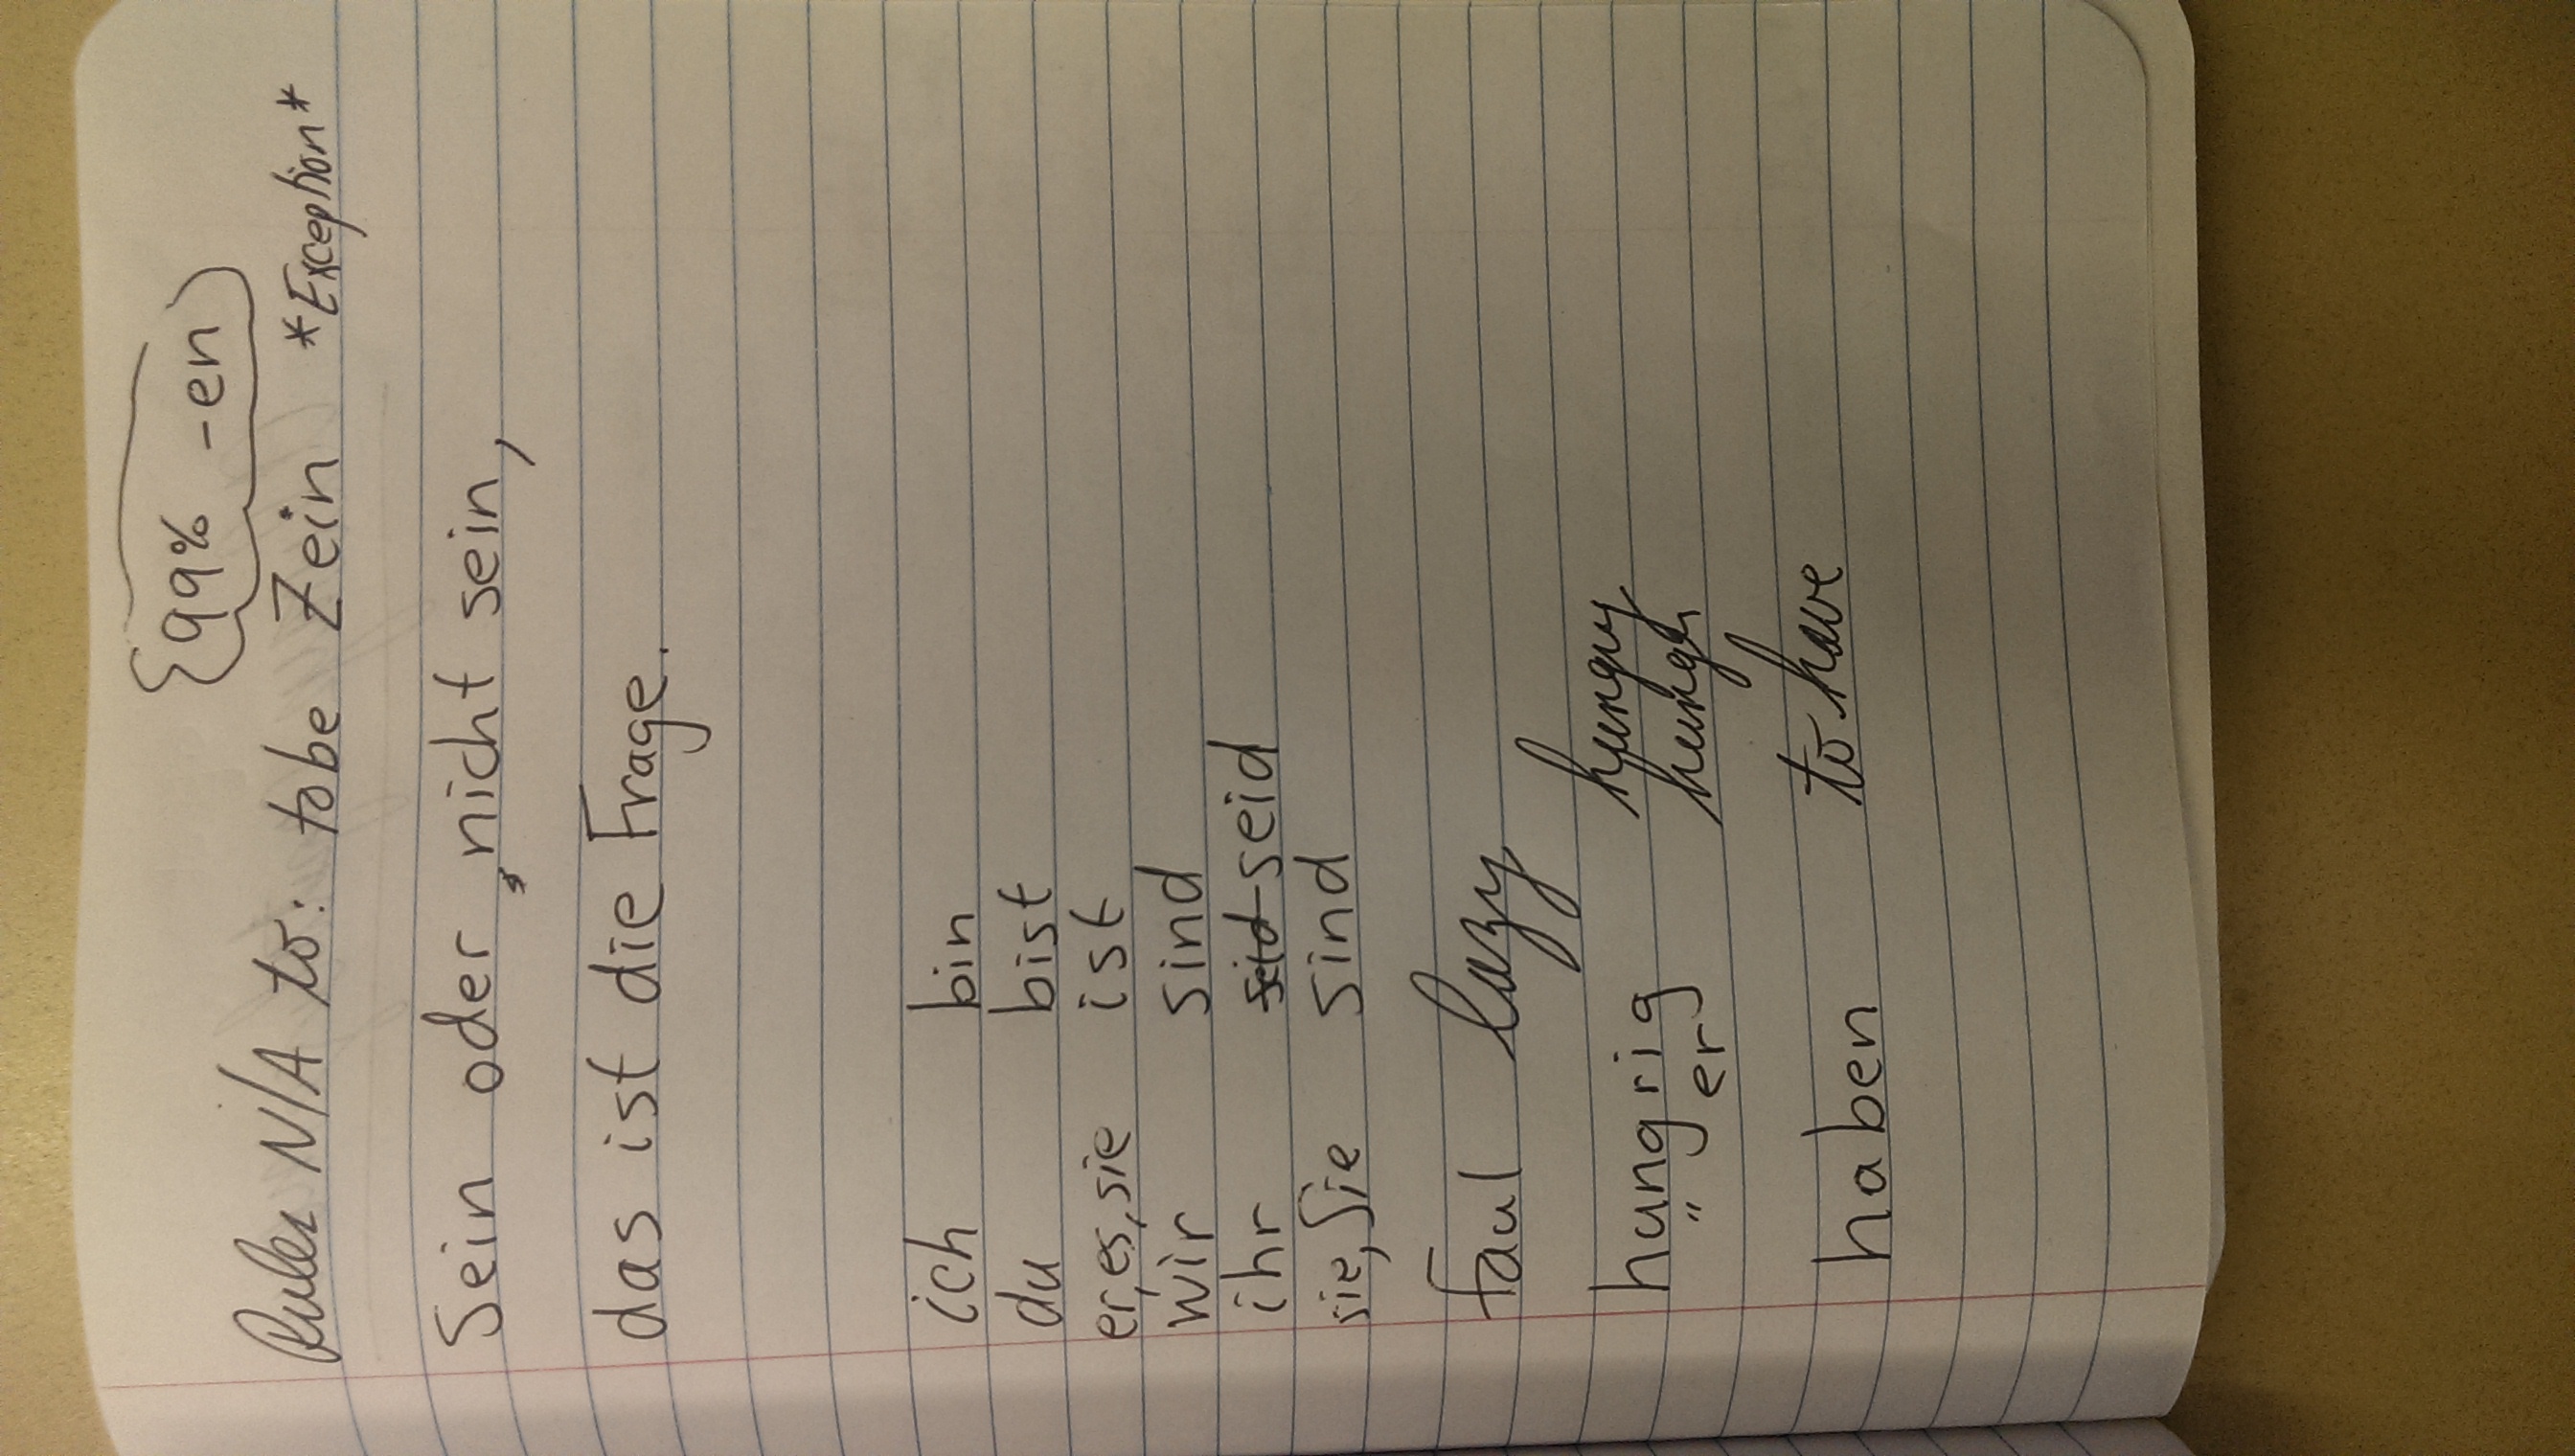 {99% -en}
Rules N/A to: to be Zein *Exception*
Sein oder, nicht sein,
das ist die Frage.
ich bin
du bist
er, es, sie ist
wir sind
ihr seid
sie, Sie sind
faul lazy
hungrig hungry
" er hunger
haben to have